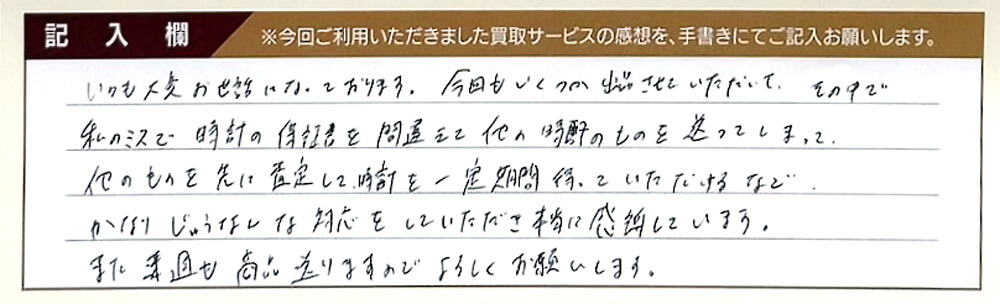 記入欄 ※今回ご利用いただきました買取サービスの感想を、手書きにてご記入お願いします。
いつも大変お世話になっております。今回もいくつか出品させていただいて、その中で
私のミスで時計の保証書を間違えて他の時計のものを送ってしまって、
他のものを先に査定して、時計を一定期間待っていただけるなど、
かなりじゅうなんな対応をしていただき本当に感謝しています。
また来週も商品送りますのでよろしくお願いします。